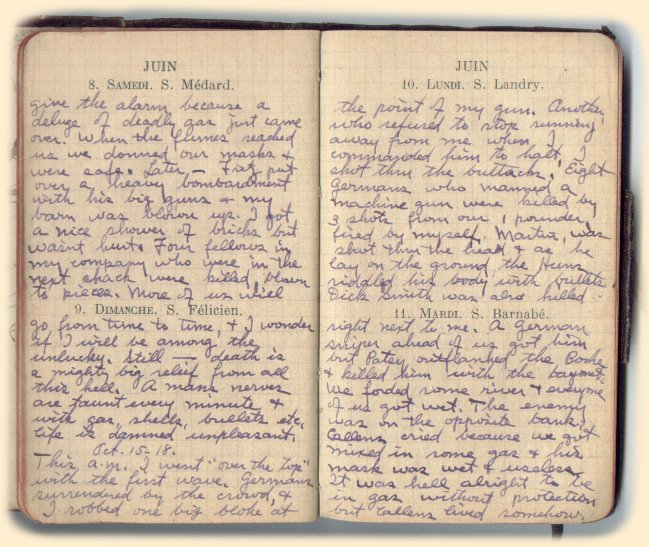 JUIN
8. SAMEDI. S. Médard.
give the alarm because a
deluge of deadly gas just came
over. When the fumes reached
us we donned our masks &
were safe. Later — Fritz put
over a heavy bombardment
with his big guns & my
barn was blown up. I got
a nice shower of bricks but
wasnt hurt. Four fellows in
my company who were in the
next shack were killed, blown
to pieces. More of us will
9. DIMANCHE. S. Félicien.
go from time to time, & I wonder
if I will be among the
unlucky. Still — death is
a mighty big relief from all
this hell. A mans nerves
are taunt every minute &
with gas, shells, bullets etc.
life is damned unpleasant.
Oct. 15-18.
This a.m. I went "over the top"
with the first wave. Germans
surrendered by the crowd, &
I robbed one big bloke at
JUIN
10. LUNDI. S. Landry.
the point of my gun. Another
who refused to stop running
away from me when I
commanded him to halt, I
shot thru the buttocks. Eight
Germans who manned a
machine gun were killed by
3 shots from our 1 pounder,
fired by myself. Martin, was
shot thru the head & as he
lay on the ground, the Huns
riddled his body with bullets.
Dick Smith was also killed -
11. MARDI. S. Barnabé.
right next to me. A German
sniper ahead of us got him
but Patsy outflanked the Boche
& killed him with the bayonet.
We forded some river & everyone
of us got wet. The enemy
was on the opposite bank.
Callens cried because we got
mixed in some gas & his
mask was wet & useless.
It was hell alright to be
in gas without protection
but Callens lived somehow.